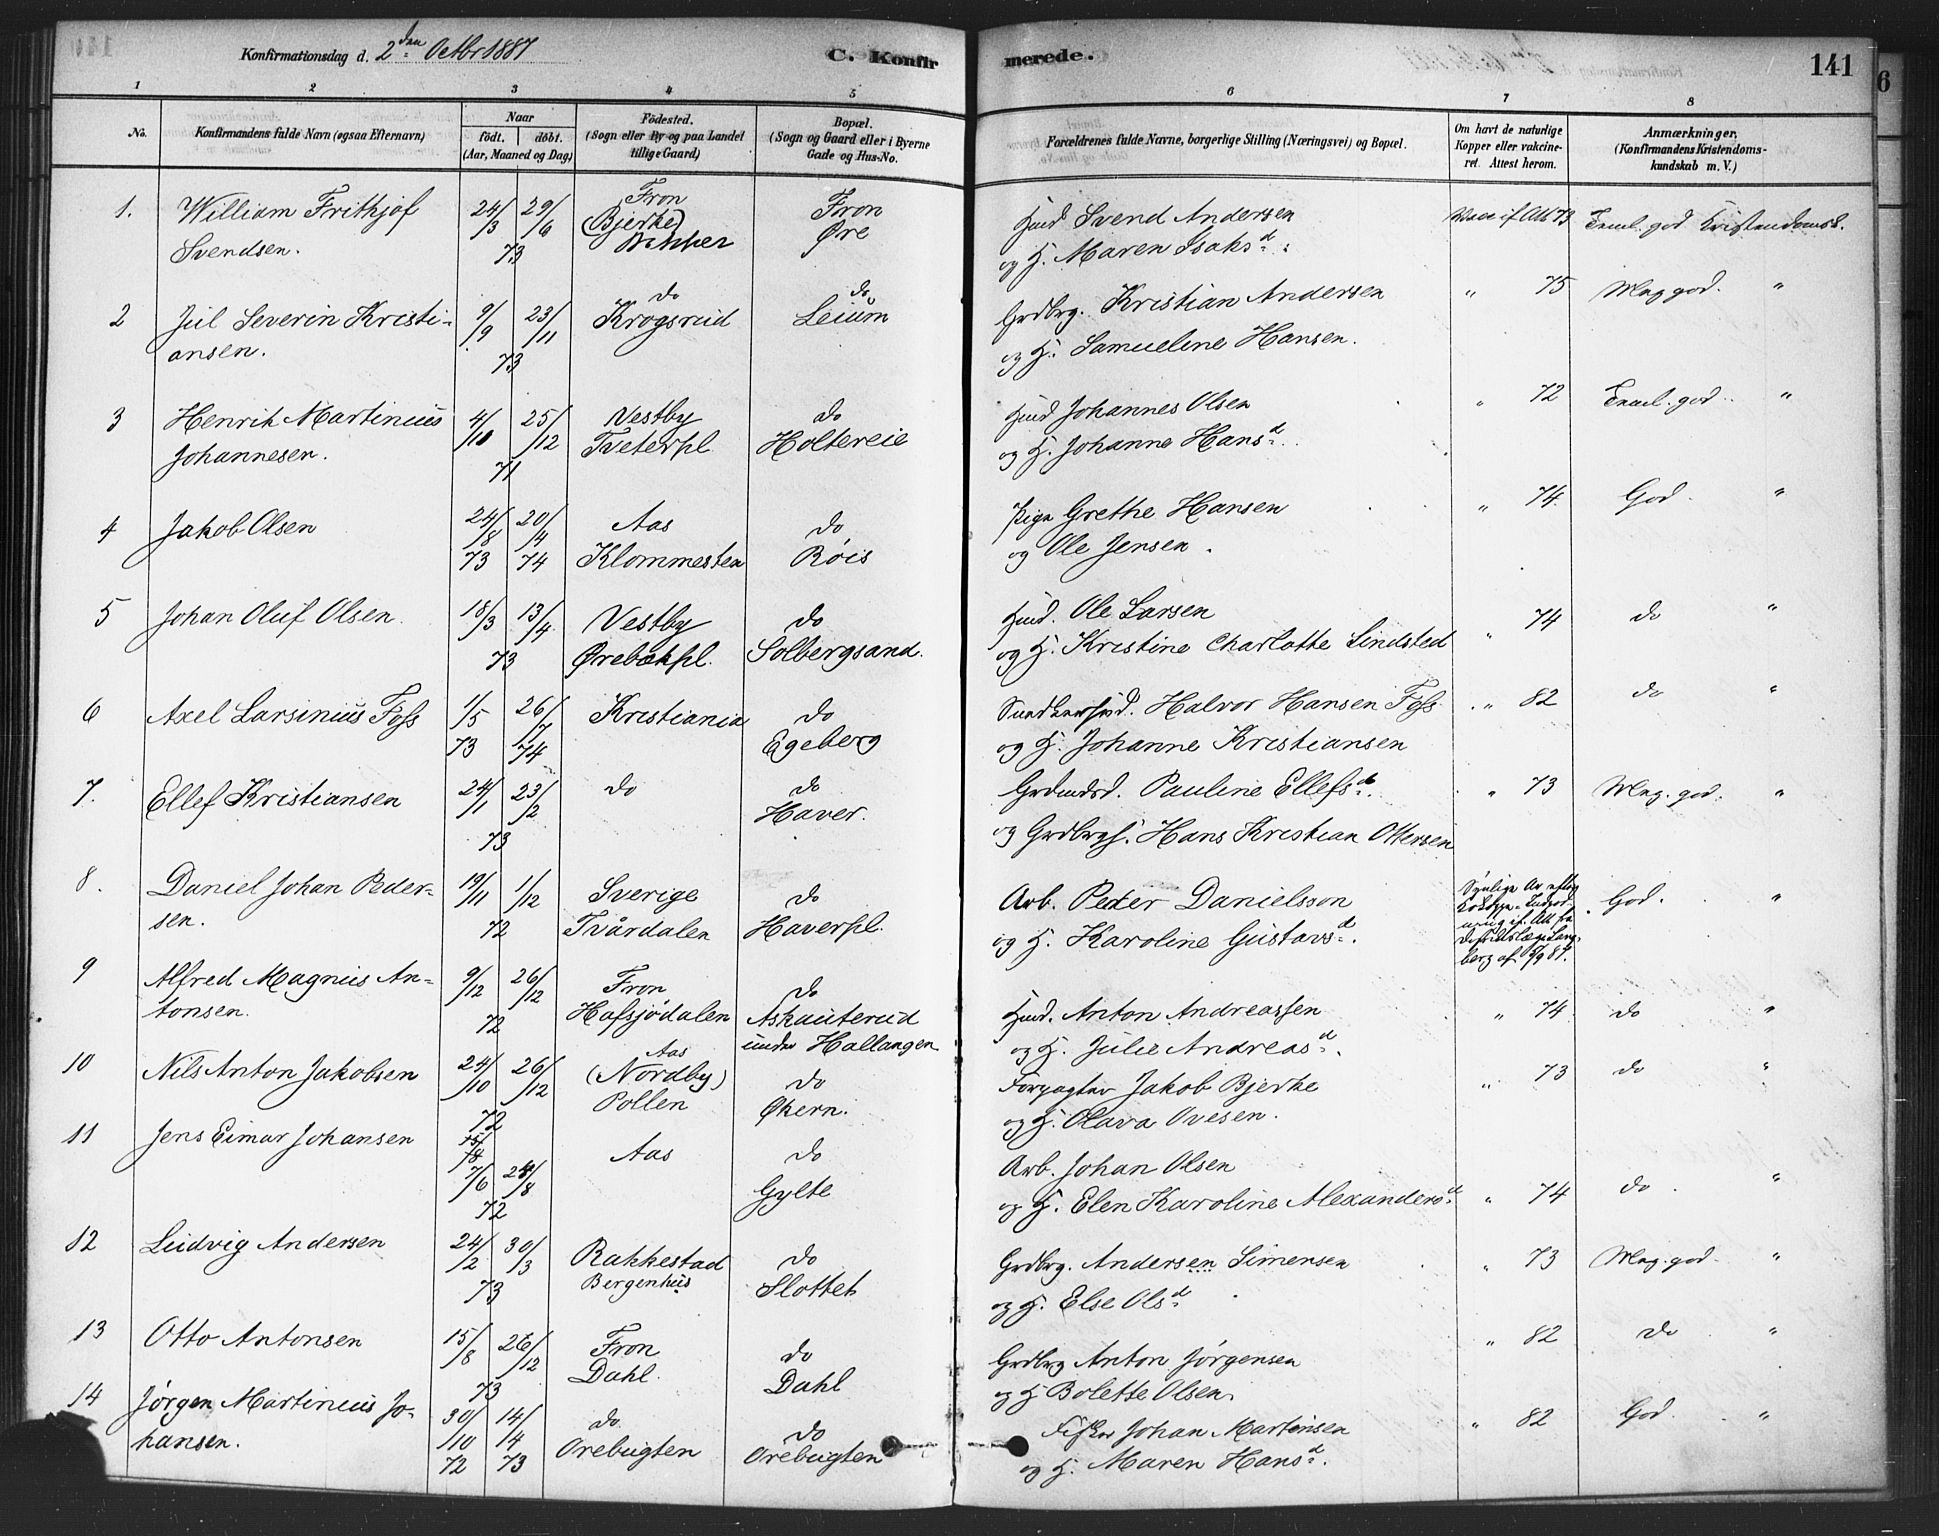 Konfirmationsdag d. 2den Octbr 1887 C. Konfirmerede. 141
1 2 3 4 5 6 7 8
No. Konfirmandens fulde Navn (ogsaa Efternavn) Naar födt. döbt. (Aar, Maaned og Dag) Födested. (Sogn eller By og paa Landet tillige Gaard) Bopæl. (Sogn og Gaard eller i Byerne Gade og Hus-No. Forældrenes fulde Navne, borgerlige Stilling (Næringsvei) og Bopæl. Om havt de naturlige Kopper eller vakcineret. Attest herom. Anmærkninger, (Konfirmandens Kristendomskundskab m. V.)
1. William Frithjof 24/3 29/6 Fron (Bjerke) Fron Hmd Svend Andersen Vacc. if. Att. 73 Temel. god Kristendomsk.
Svendsen. 73 Øre og H. Maren Isaksd.
2 Jul Severin Kristi- 9/9 23/11 do Krogsrud do Leium Grdbrg. Kristian Andersen " 75 Meg. god. "
ansen. 73 og H. Samueline Hansen.
3 Henrik Martinius 4/10 25/12 Vestby do Hmd Johannes Olsen " 72 Temel. god. "
Johannesen. 71 Tveterpl. Holtereie og H. Johanne Hansd.
4 Jakob Olsen 24/8 20/4 Aas do Pige Grethe Hansen " 74. God. "
73 74 Klommesten Röis og Ole Jensen.
5 Johan Oluf Olsen. 18/3 13/4 Vestby do Hmd. Ole Larsen " 74 do "
73 Ørebækpl. Solbergsand. og H. Kristine Charlotte Lindsted
6 Axel Larsinius Foss 1/5 26/7 Kristiania do Snedkersvd. Halvor Hansen Foss " 82 do "
73 74 Egeberg og H. Johanne Kristiansen
7. Ellef Kristiansen 24/1 23/2 do do Grdmdsd. Pauline Ellefsd. " 73 Meg. god. "
73 Haver. og Grdbrgs. Hans Kristian Ottersen
8. Daniel Johan Peder- 19/11 1/12 Sverige do Arb. Peder Danielsson Synlige Ar efter God. "
sen. 72 Tvårdalen Haverpl. og H. Karoline Gustavsd.
9 Alfred Magnus An- 9/12 26/12 Fron do Hmd. Anton Andreassen " 74 do "
tonsen. 72 Hafsjødalen Askauterud under Hallangen og H. Julie Andreasd.
10 Nils Anton Jakobsen 24/10 26/12 Aas (Nordby) do Forpagter Jakob Bjerke " 73 do "
72 Pollen Økern. og H. Olava Ovesen.
11 Jens Eimar Johansen 7/6 24/8 Aas do Arb. Johan Olsen
72 Gylte og H. Elen Karoline Alexandersd. " 74 do. "
12 Ludvig Andersen 24/2 30/3 Rakkestad do Grdbrg. Andersen Simensen " 73 Meg. god. "
73 Bergenhus Slottet og H. Else Olsd.
13 Otto Antonsen 15/8 26/12 Fron do Grdbrg Anton Jørgensen " 82 do "
73 Dahl. Dahl og H Bolette Olsen.
14 Jørgen Martinius Jo- 30/10 14/4 do do Fisker Johan Martinsen " 82 God. "
hansen. 72 73 Orebugten Orebugten og H. Maren Hansd.